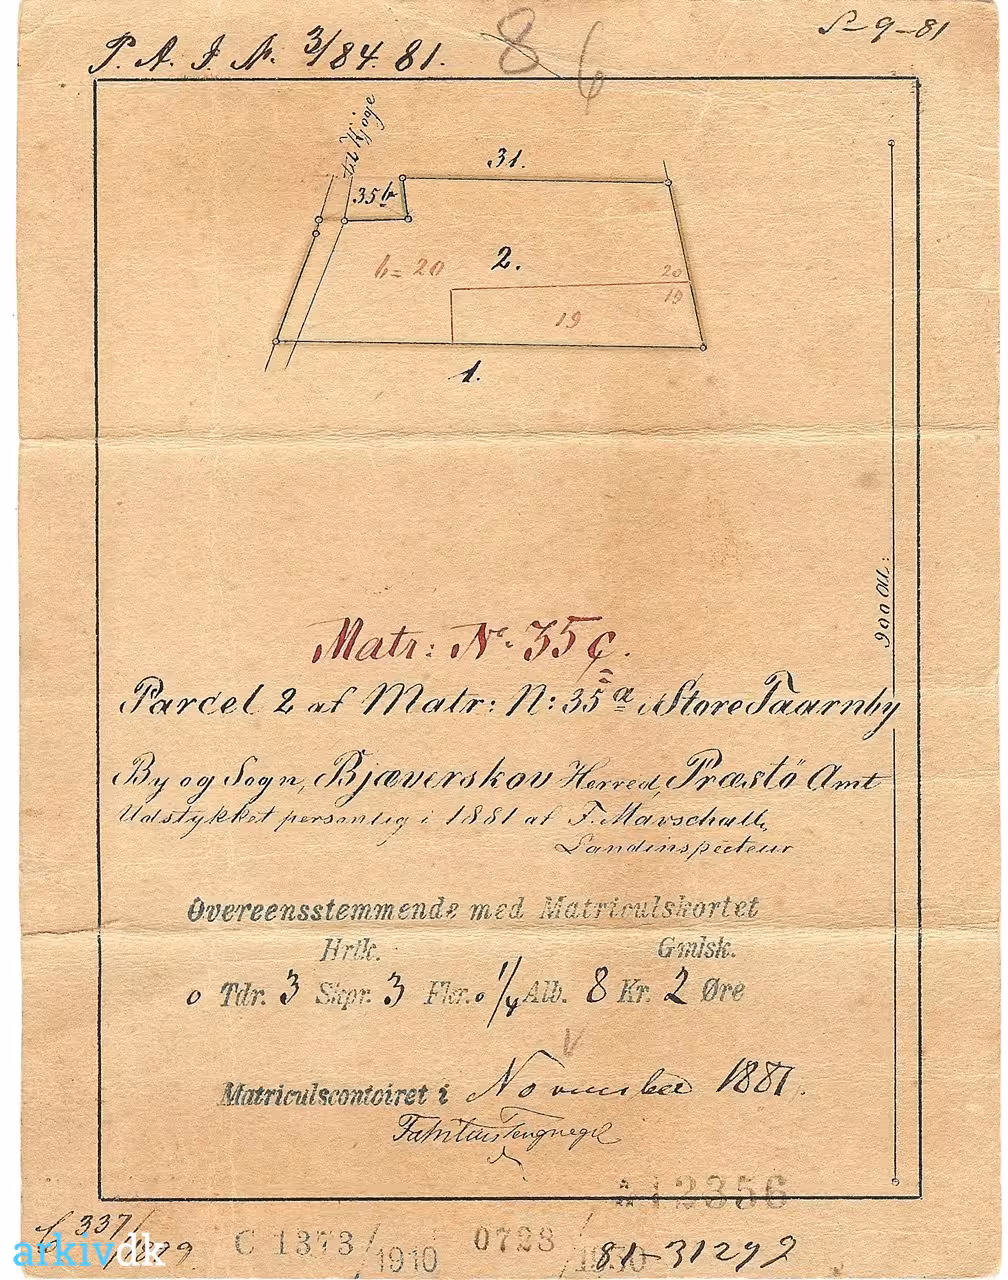 P. A. J. Nr. 3/84. 81.
8
6
S-9-81
til Kjøge
31.
35 b
b = 20
2.
20
19
19
1.
900 Al:
Matr: Nr. 35 c.
Parcel 2 af Matr: N: 35 a i Store Taarnby
By og Sogn, Bjæverskov Herred, Præstö Amt
Udstykket personlig i 1881 af F. Marschall,
Landinspecteur
Overeensstemmende med Matriculskortet
Hrtk. Gmlsk.
0 Tdr. 3 Skpr. 3 Fkr. 0 1/4 Alb. 8 Kr. 2 Øre
Matriculscontoiret i November 1881.
Tengnagel
12356
337/
C 1373/1910 0728/1930 81-31292
arkivdk